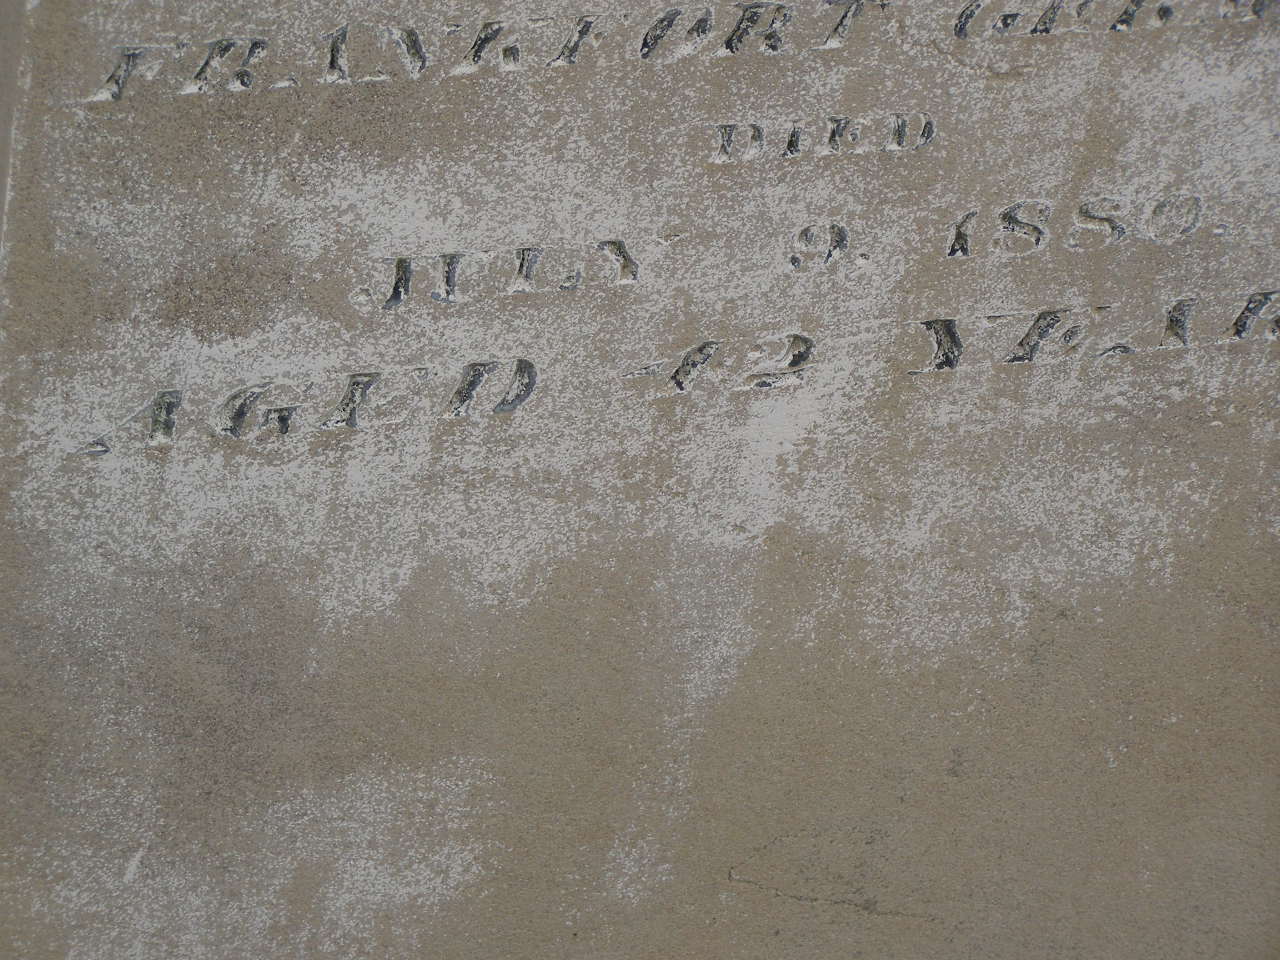 FRANKFORT
DIED
JULY 9, 1880.
AGED 42 YEAR